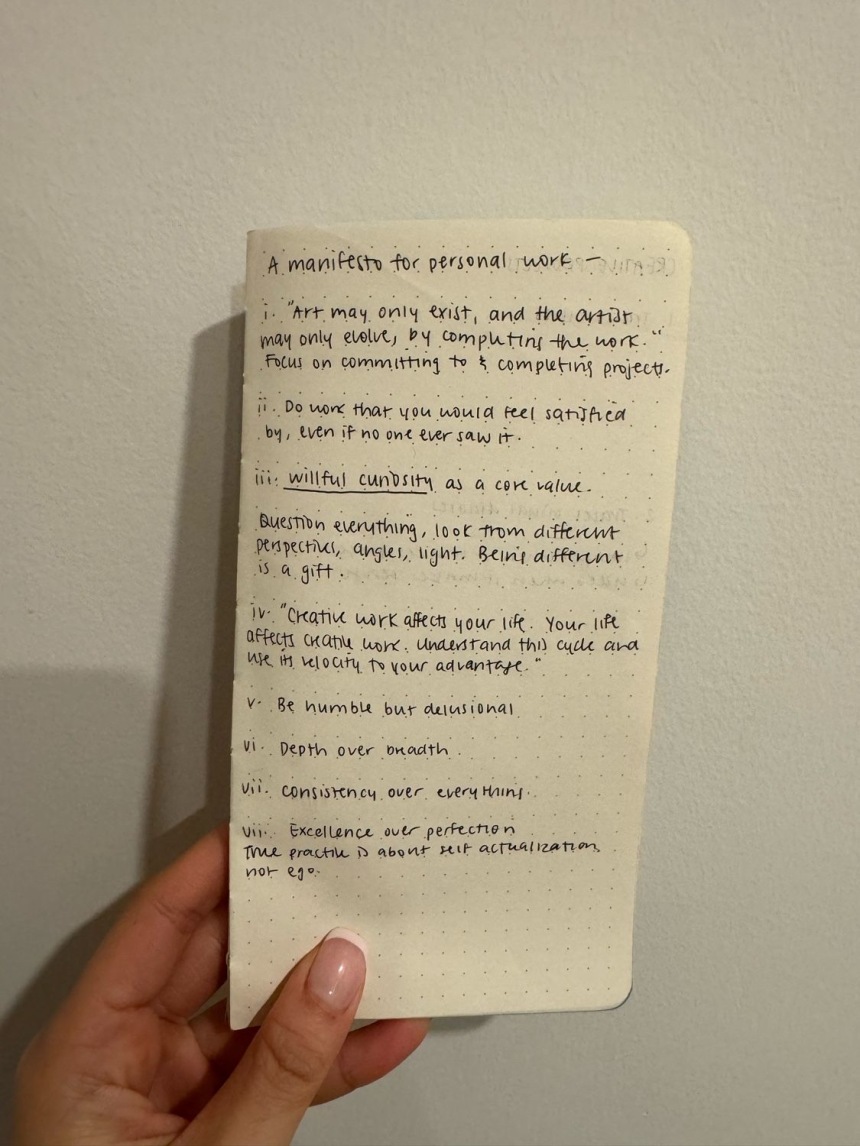 A manifesto for personal work –
i. "Art may only exist, and the artist
may only evolve, by completing the work."
Focus on committing to & completing projects.
ii. Do work that you would feel satisfied
by, even if no one ever saw it.
iii. willful curiosity as a core value.
Question everything, look from different
perspectives, angles, light. Being different
is a gift.
iv. "Creative work affects your life. Your life
affects creative work. Understand this cycle and
use its velocity to your advantage."
v. Be humble but delusional
vi. Depth over breadth.
vii. Consistency over everything.
viii. Excellence over perfection
True practice is about self actualization,
not ego.